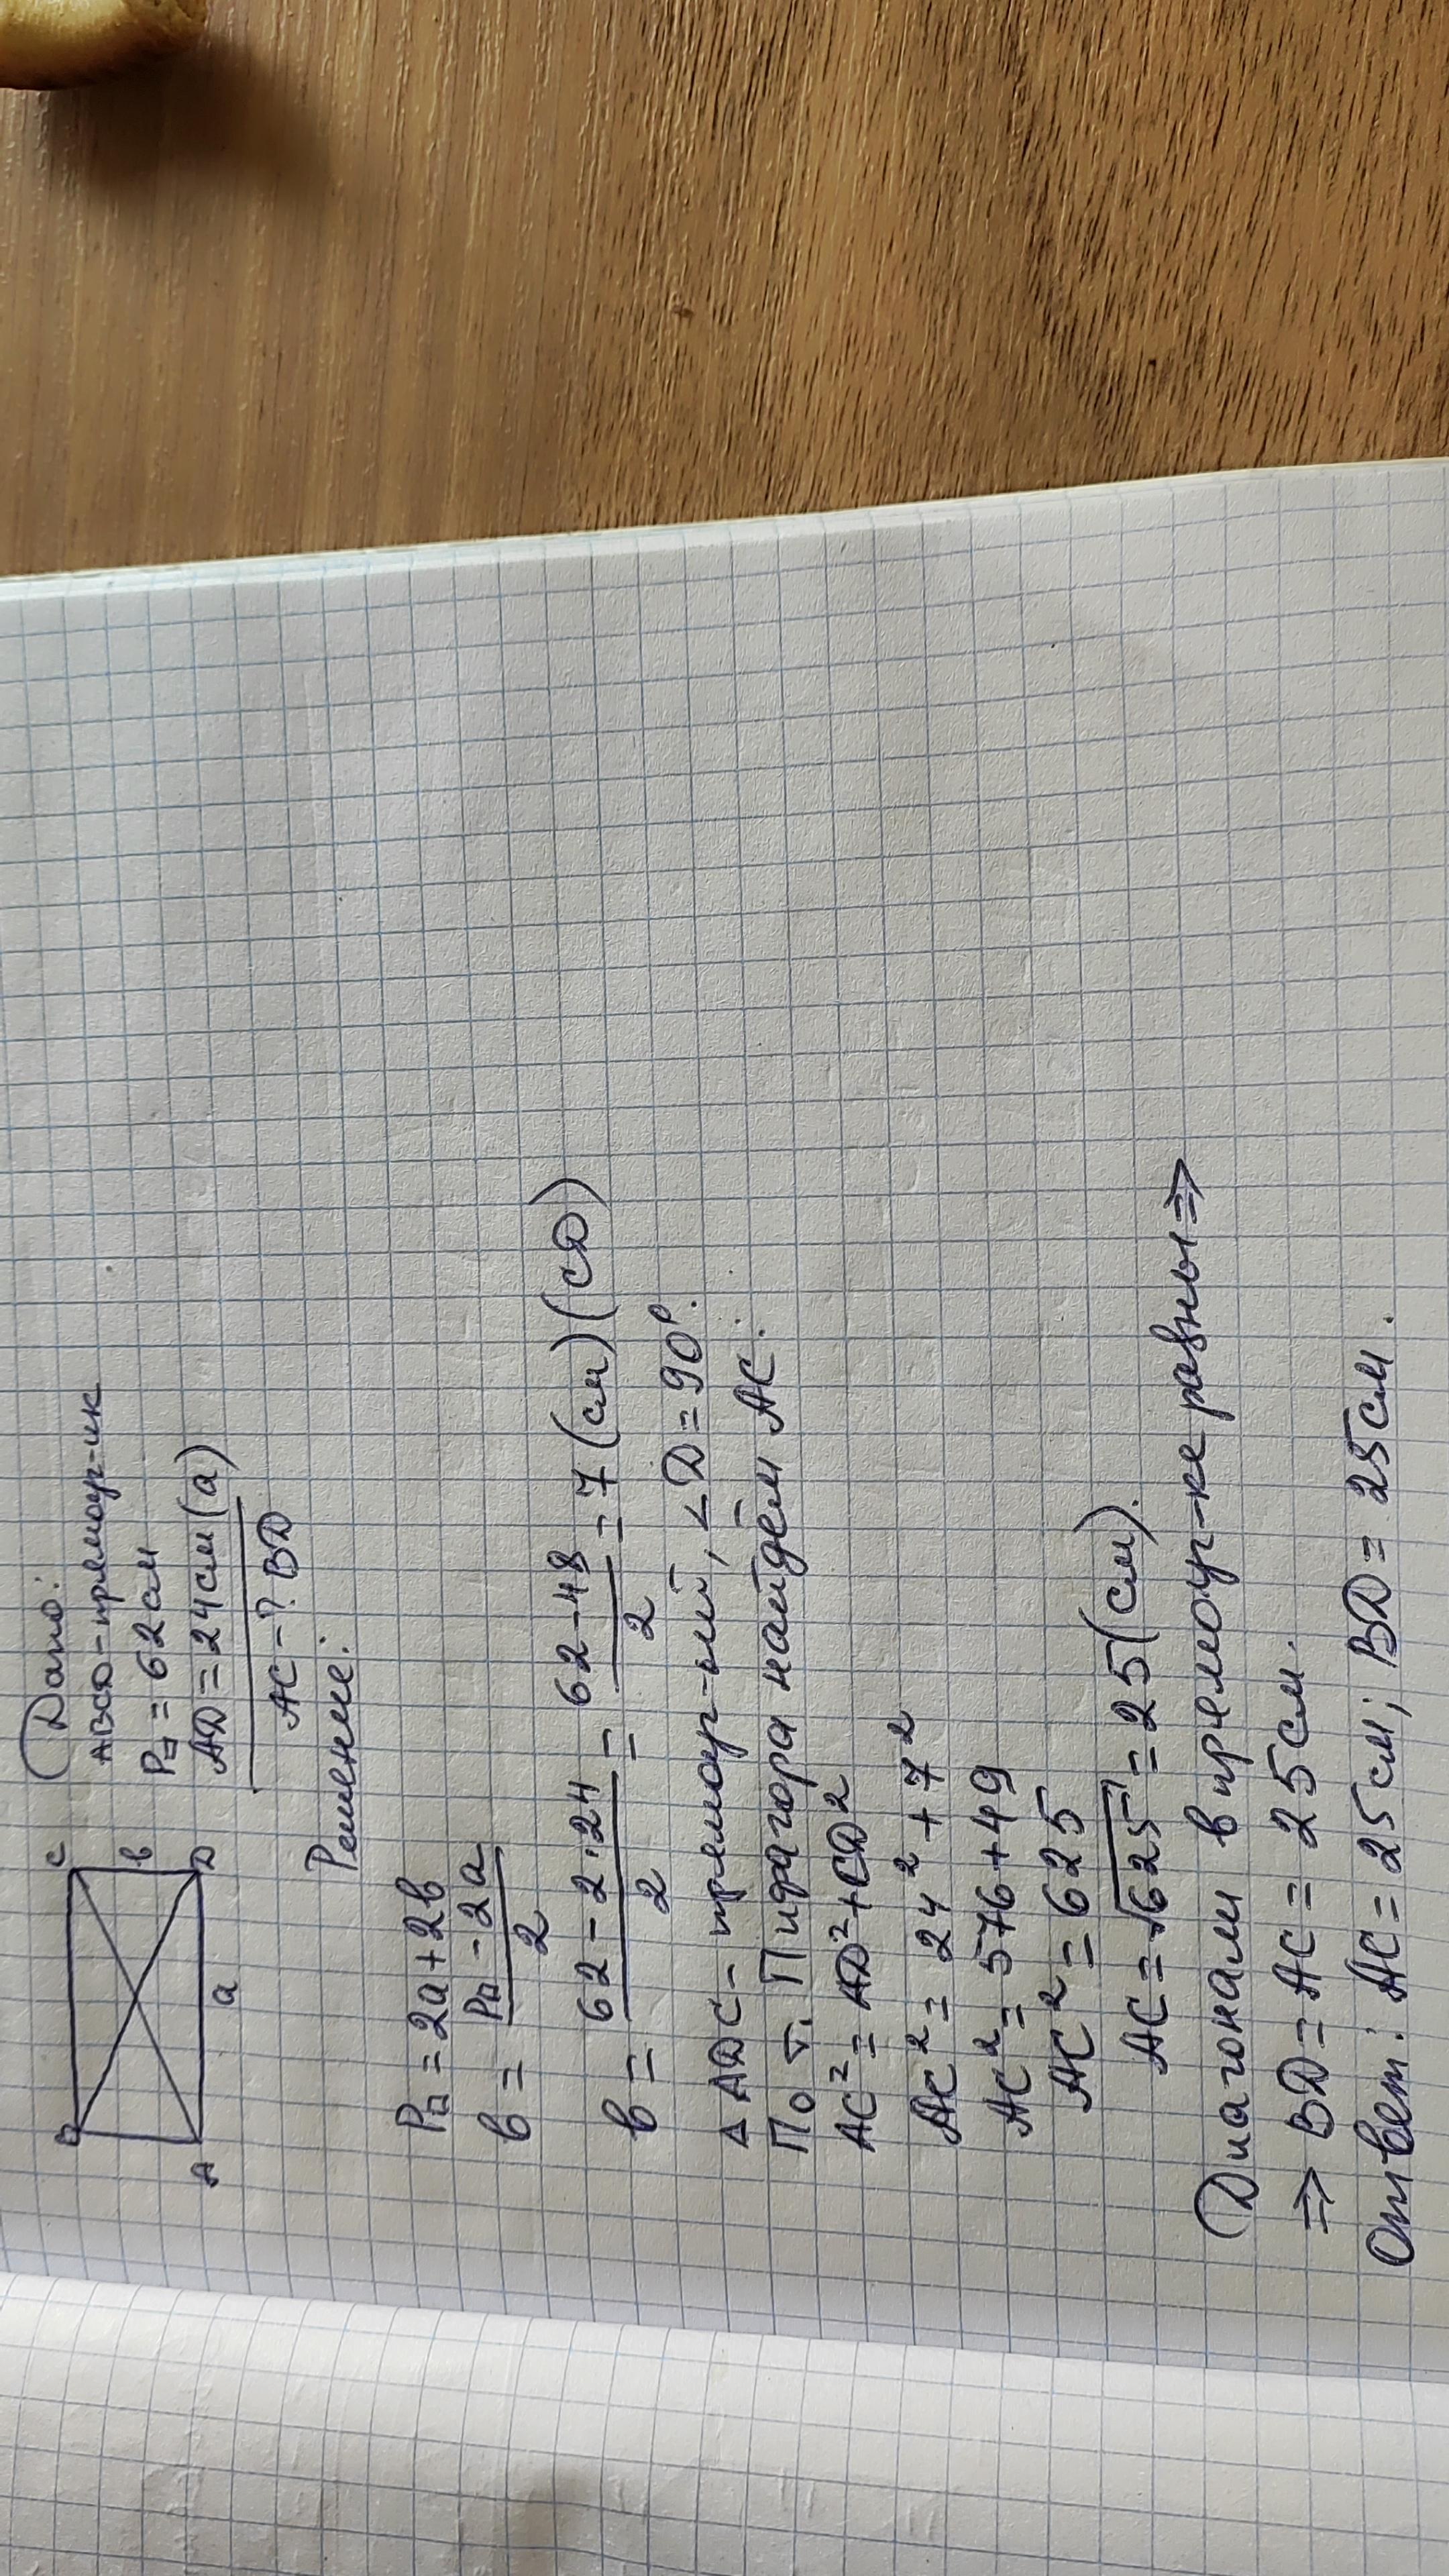 B
C
в
A
D
a
Дано:
ABCD-прямоуг-ик
P▭ = 62 см
AD = 24 см (a)
AC - ? BD
Решение:
P▭ = 2a + 2в
в = (P▭ - 2a)/2
в = (62 - 2·24)/2 = (62 - 48)/2 = 7 (см) (CD)
Δ ADC - прямоуг-ый, ∠D = 90°.
По т. Пифагора найдём AC:
AC² = AD² + CD²
AC² = 24² + 7²
AC² = 576 + 49
AC² = 625
AC = √625 = 25 (см).
Диагонали в прямоуг-ке равны ⇒
⇒ BD = AC = 25 см.
Ответ: AC = 25 см; BD = 25 см.